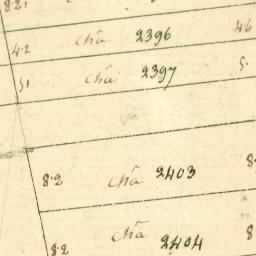 821
42 chā 2396 46
51 chā 2397 5.
8·2 chā 2403 8
8·2 chā 2404 8